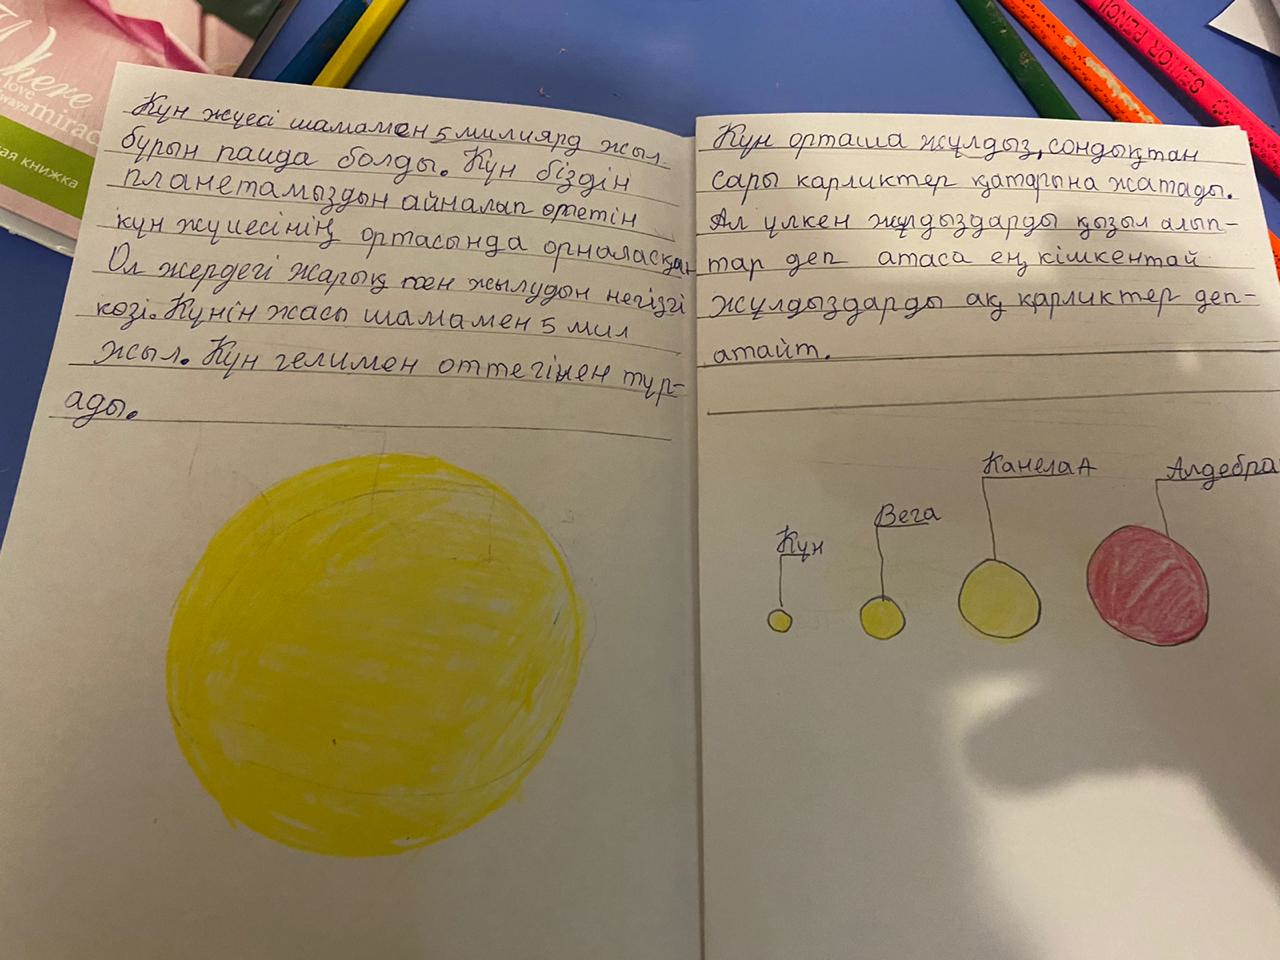 Where
love
always
mirac
ая книжка
SENIOR PENCIL
Күн жүесі шамамен 5 милиярд жыл
бұрын паида болды. Күн біздің
планетамыздын айналап өтетін
күн жүиесінің ортасында орналасқан
Ол жердегі жарық пен жылудың негізгі
көзі. Күнін жасы шамамен 5 мил
жыл. Күн гелимен оттегінен тұр-
ады.
Күн орташа жұлдыз, сондықтан
сары карликтер қатарына жатады.
Ал үлкен жұлдыздарды қызыл алып-
тар деп атаса ең кішкентай
жұлдыздарды ақ қарликтер деп-
атайт.
Күн
Вега
Канела А
Алдебра